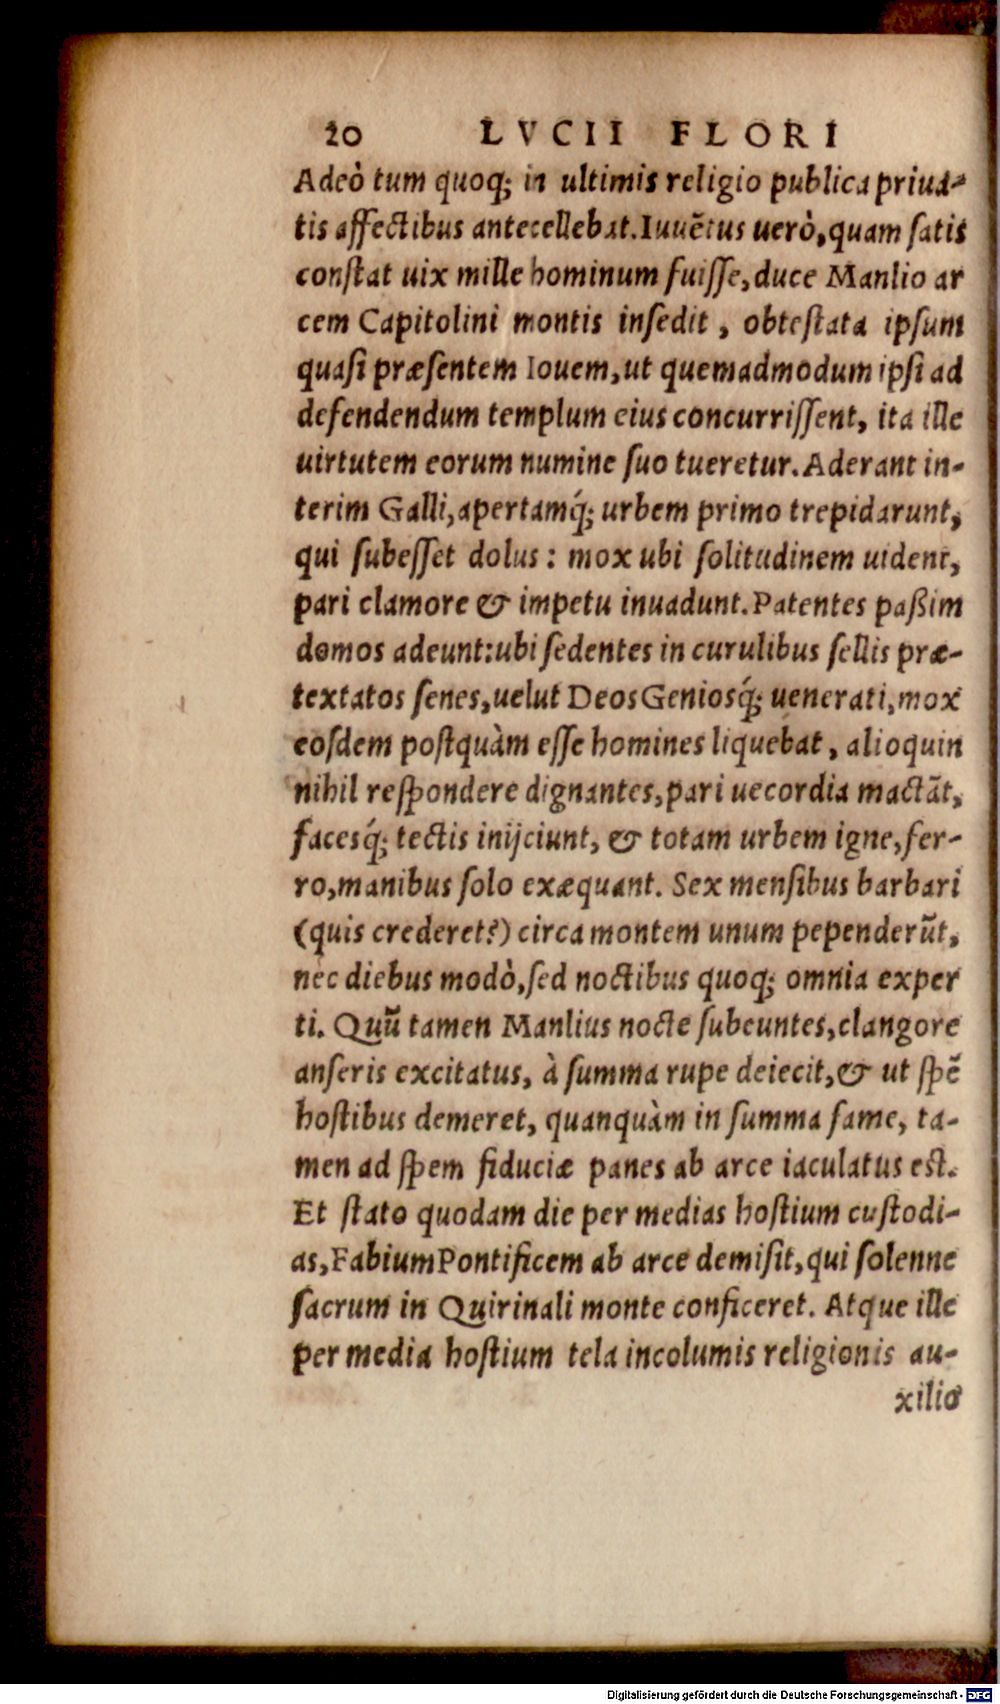 20 LVCII FLORI
Adeò tum quoq; in ultimis religio publica priua-
tis affectibus antecellebat. Iuuẽtus uerò, quam satis
constat uix mille hominum fuisse, duce Manlio ar
cem Capitolini montis insedit, obtestata ipsum
quasi præsentem Iouem, ut quemadmodum ipsi ad
defendendum templum eius concurrissent, ita ille
uirtutem eorum numine suo tueretur. Aderant in-
terim Galli, apertamq́; urbem primo trepidarunt,
qui subesset dolus: mox ubi solitudinem uident,
pari clamore & impetu inuadunt. Patentes paßim
domos adeunt: ubi sedentes in curulibus sellis præ-
textatos senes, uelut Deos Geniosq́; uenerati, mox
eosdem postquàm esse homines liquebat, alioquin
nihil respondere dignantes, pari uecordia mactãt,
facesq́; tectis inijciunt, & totam urbem igne, fer-
ro, manibus solo exæquant. Sex mensibus barbari
(quis crederet?) circa montem unum pependerũt,
nec diebus modò, sed noctibus quoq; omnia exper
ti. Quũ tamen Manlius nocte subeuntes, clangore
anseris excitatus, à summa rupe deiecit, & ut spẽ
hostibus demeret, quanquàm in summa fame, ta-
men ad spem fiduciæ panes ab arce iaculatus est.
Et stato quodam die per medias hostium custodi-
as, Fabium Pontificem ab arce demisit, qui solenne
sacrum in Quirinali monte conficeret. Atque ille
per media hostium tela incolumis religionis au-
xilio
Digitalisierung gefördert durch die Deutsche Forschungsgemeinschaft - DFG